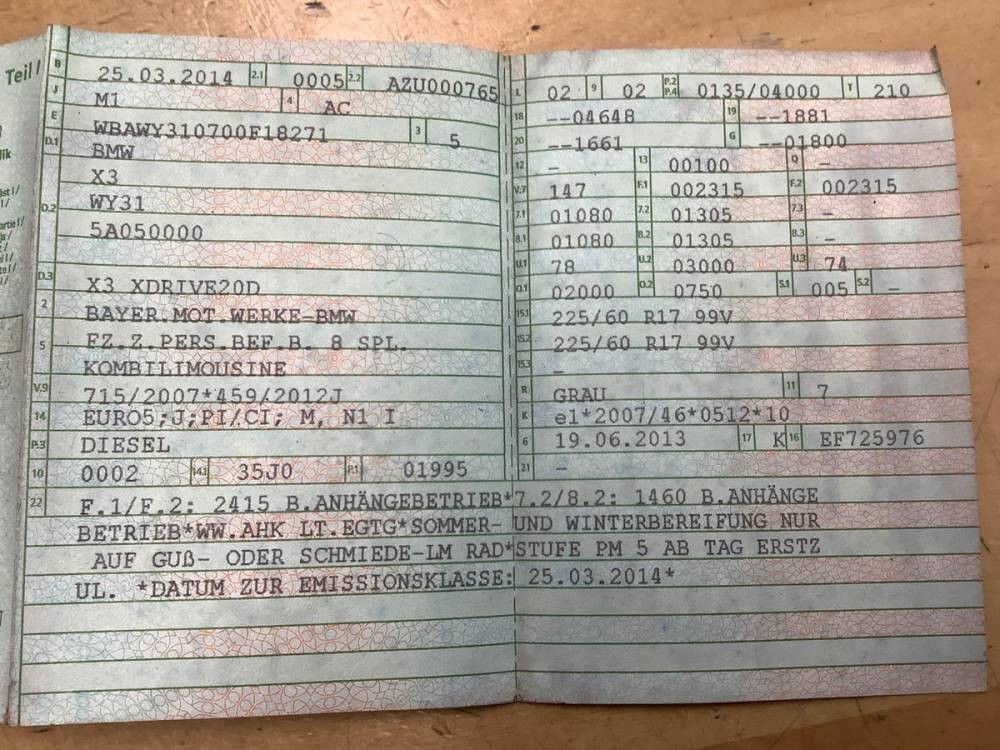 Teil I
B 25.03.2014 2.1 0005 2.2 AZU000765
J M1 4 AC
E WBAWY310700F18271 3 5
D.1 BMW
X3
D.2 WY31
5A050000
D.3 X3 XDRIVE20D
2 BAYER.MOT.WERKE-BMW
5 FZ.Z.PERS.BEF.B. 8 SPL.
KOMBILIMOUSINE
V.9 715/2007*459/2012J
14 EURO5;J;PI/CI; M, N1 I
P.3 DIESEL
10 0002 14.1 35J0 P.1 01995
L 02 9 02 P.2 P.4 0135/04000 T 210
18 --04648 19 --1881
20 --1661 G --01800
12 - 13 00100 Q -
V.7 147 F.1 002315 F.2 002315
7.1 01080 7.2 01305 7.3 -
8.1 01080 8.2 01305 8.3 -
U.1 78 U.2 03000 U.3 74
O.1 02000 O.2 0750 S.1 005 S.2 -
15.1 225/60 R17 99V
15.2 225/60 R17 99V
15.3 -
R GRAU 11 7
K e1*2007/46*0512*10
6 19.06.2013 17 K 16 EF725976
21 -
22 F.1/F.2: 2415 B.ANHÄNGEBETRIEB*7.2/8.2: 1460 B.ANHÄNGE
BETRIEB*WW.AHK LT.EGTG*SOMMER- UND WINTERBEREIFUNG NUR
AUF GUß- ODER SCHMIEDE-LM RAD*STUFE PM 5 AB TAG ERSTZ
UL. *DATUM ZUR EMISSIONSKLASSE: 25.03.2014*